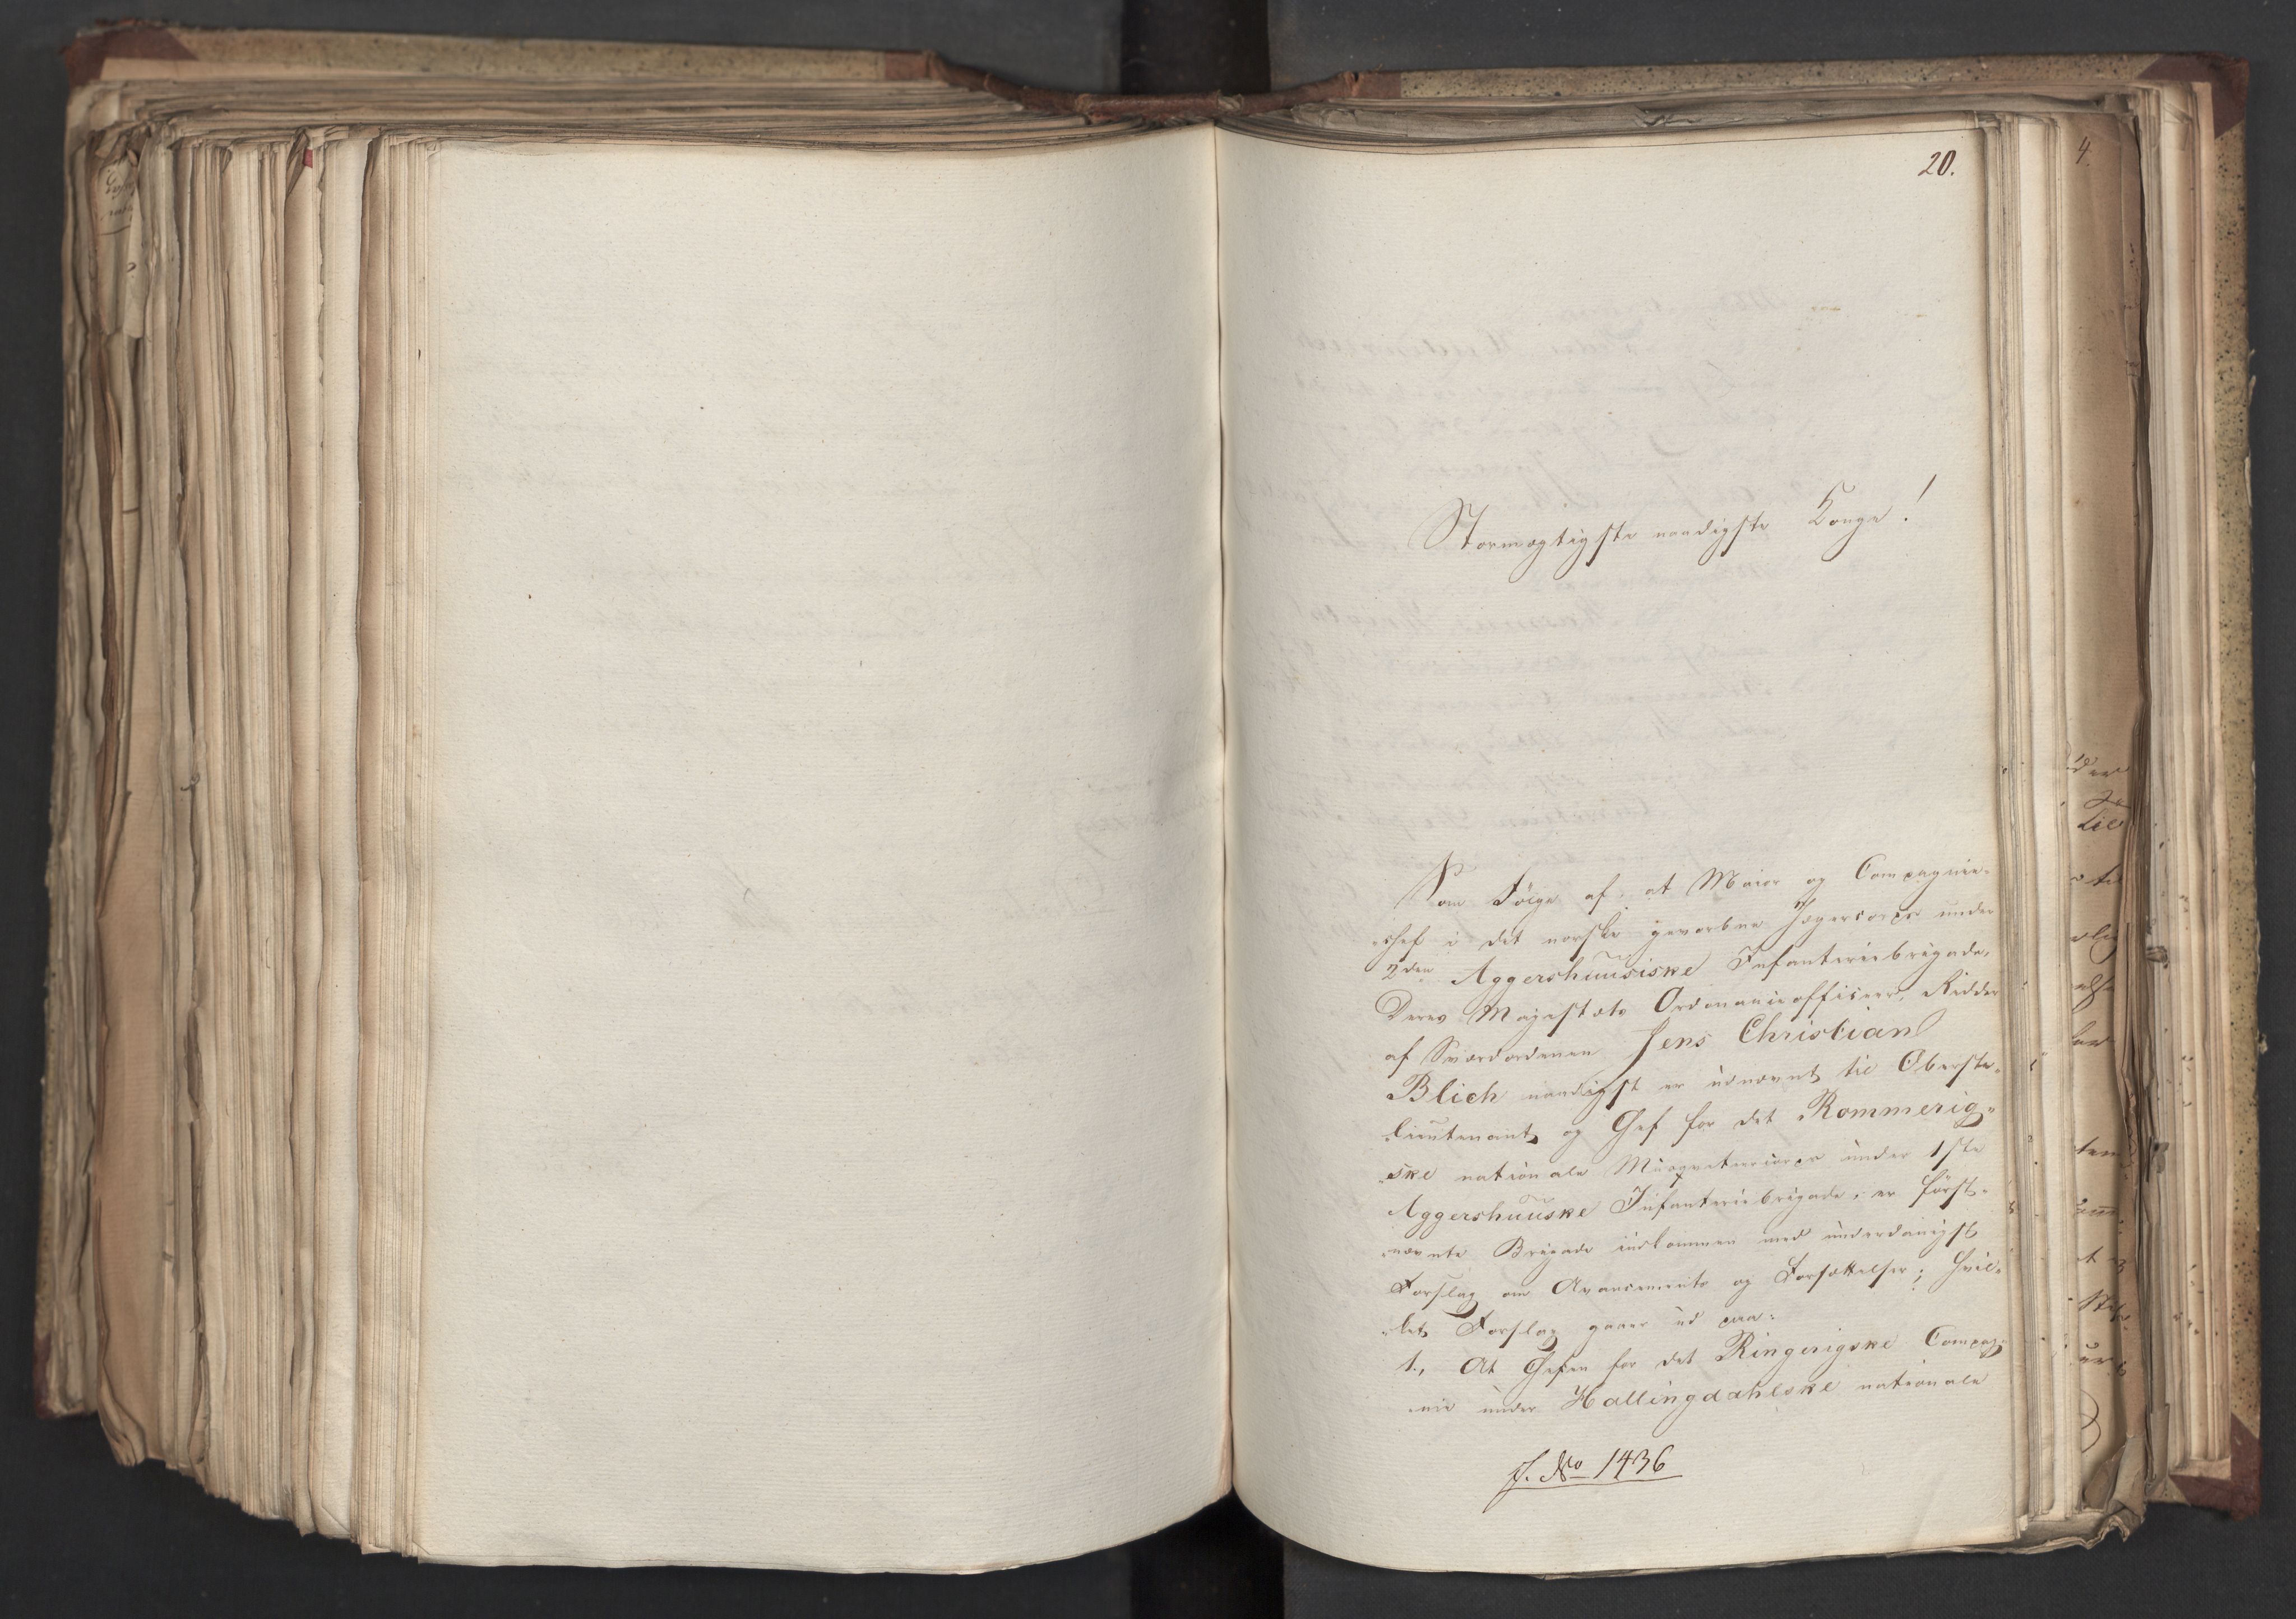 20.
Stormægtigste naadigste Konge!
Som Følge af, at Maior og Compagnie-
-chef i det norske gevorbne Jægercorps under
2den Aggershuusiske Infanteriebrigade,
Deres Majestæts Ordonanceofficeer, Ridder
af Sværdordenen Jens Christian
Blich naadigst er udnævnt til Oberste-
-lieutenant og Chef for det Rommerig-
-ske nationale Musqveteercorps under 1ste
Aggershuuske Infanteriebrigade, er først-
-nævnte Brigade indkommen med underdanigst
Forslag om Avancements og Forsættelser; hvil-
-ket Forslag gaaer ud paa:
1., At Chefen for det Ringerigske Compag-
-nie under Hallingdahlske nationale
J. No 1436
4.